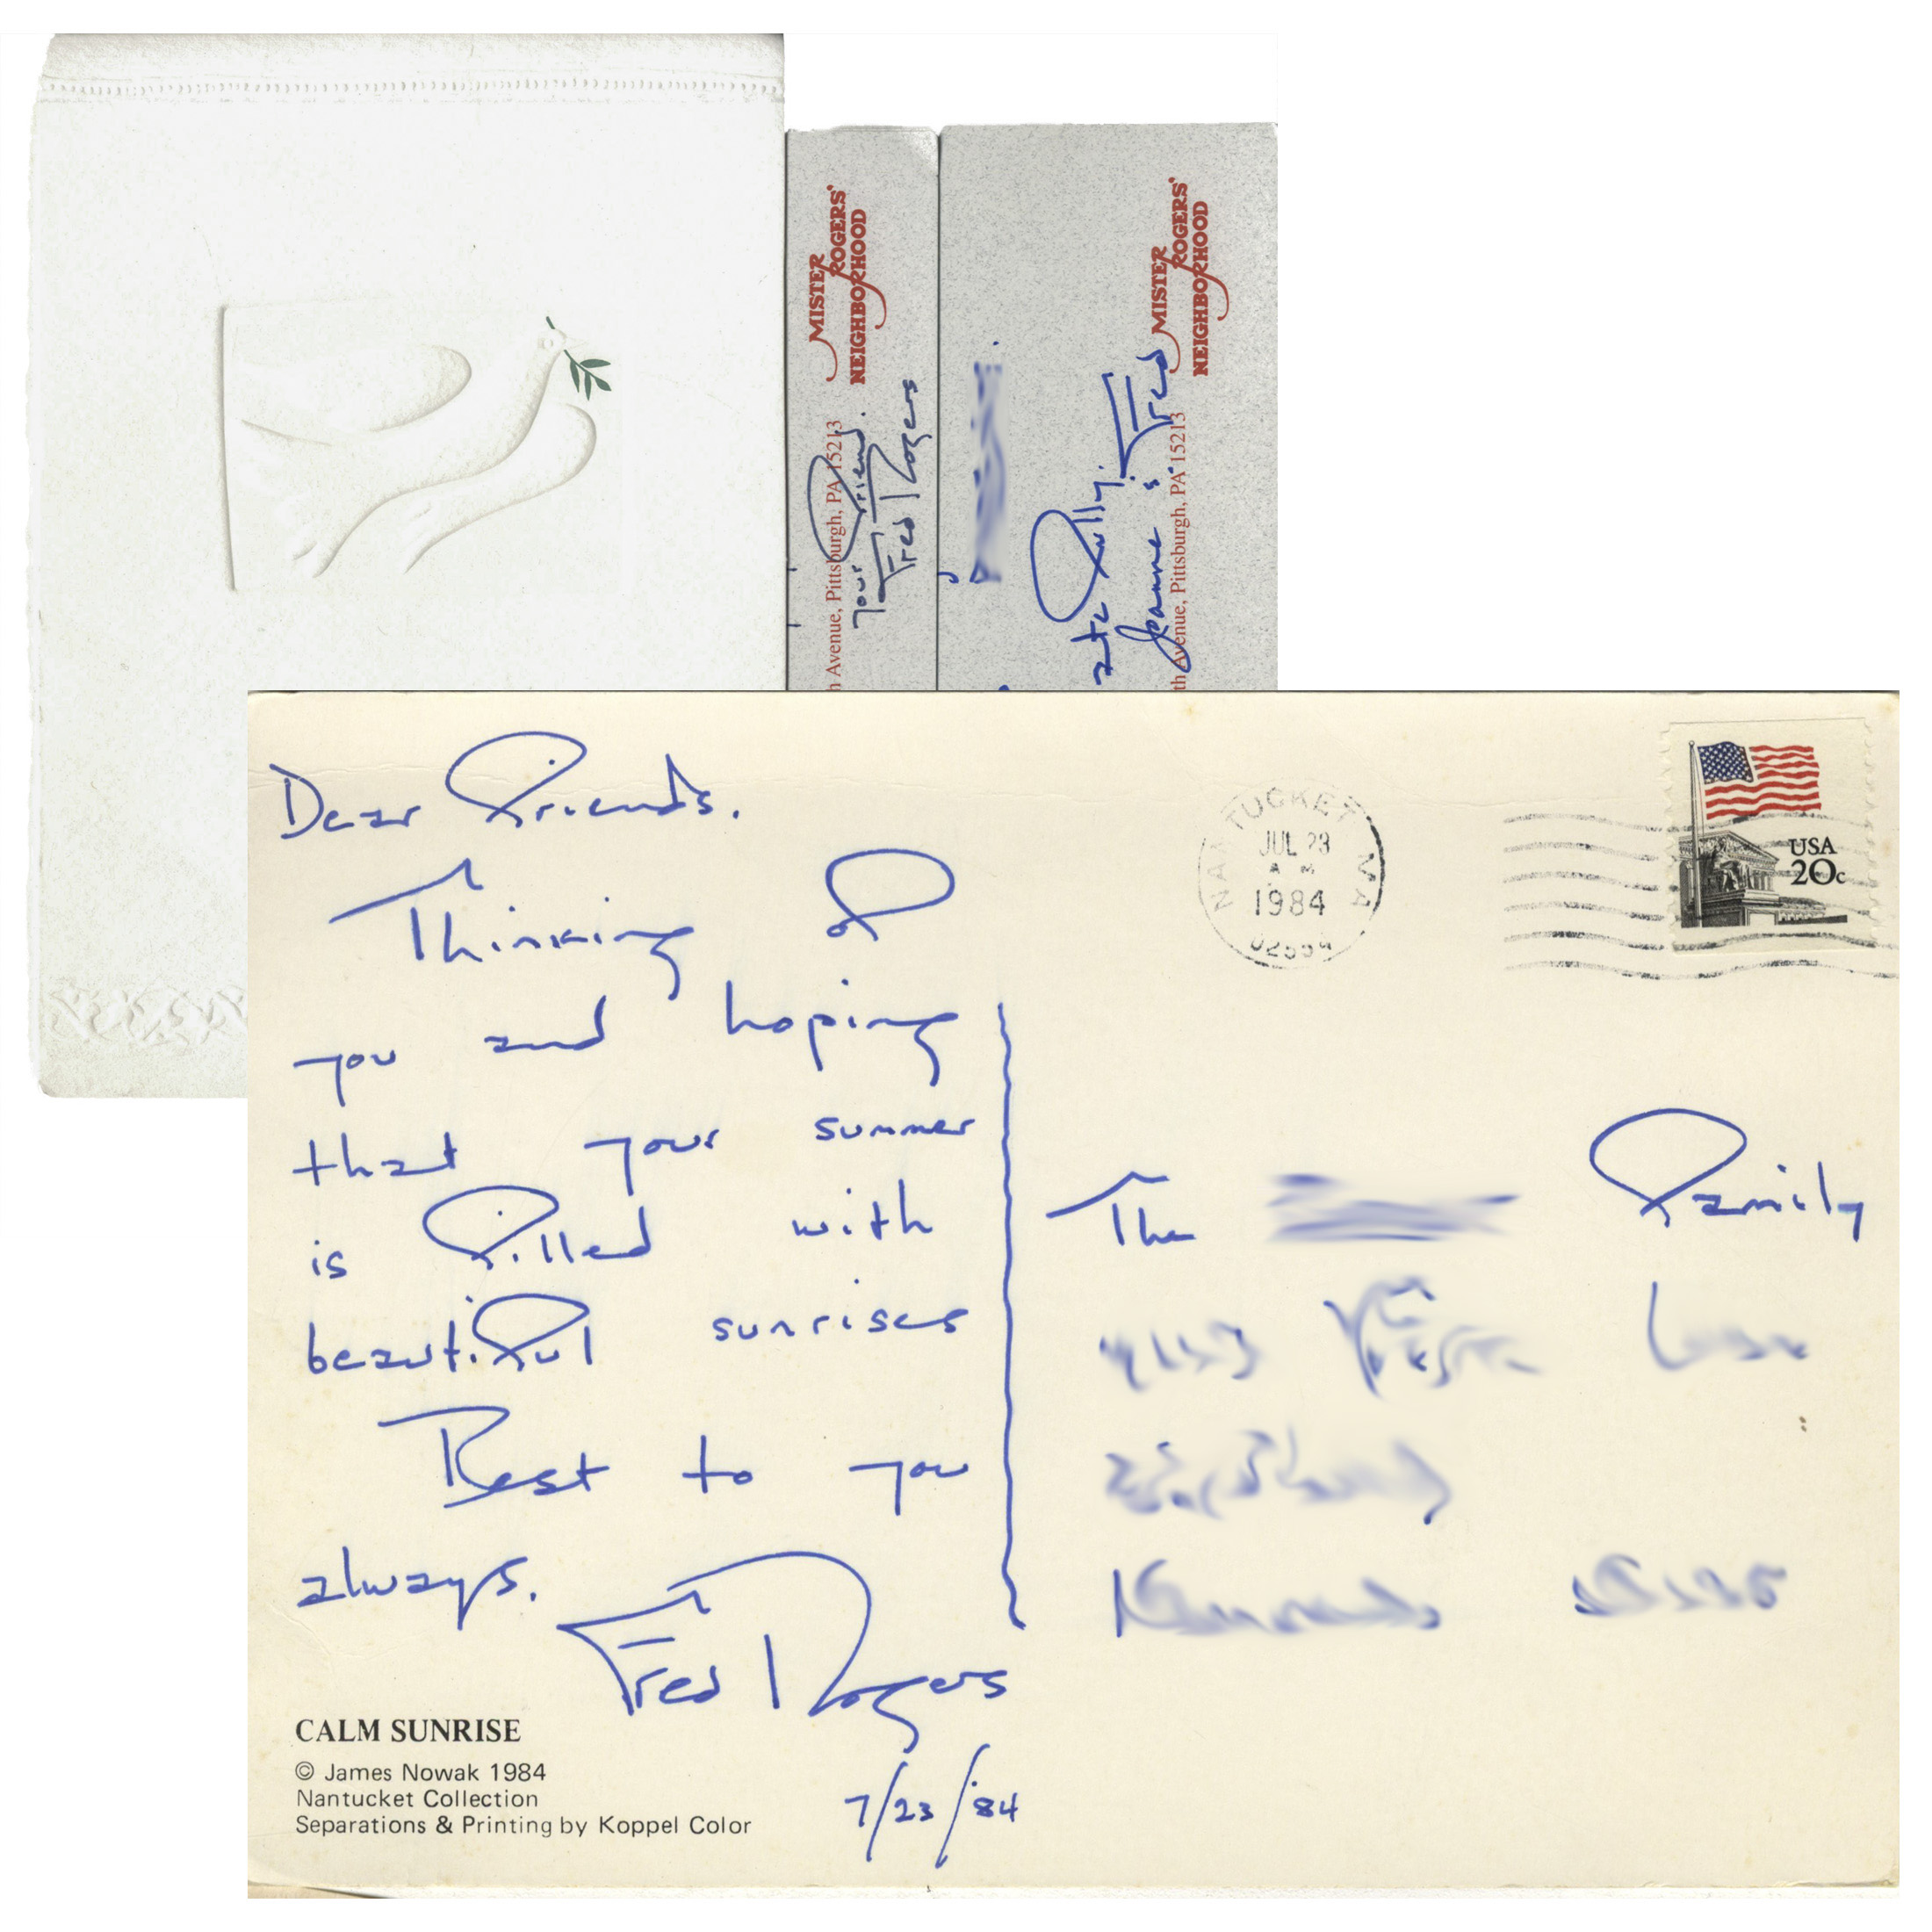 MISTER
ROGERS'
NEIGHBORHOOD
h Avenue, Pittsburgh, PA 15213
Your Friend.
Fred Rogers
MISTER
ROGERS'
NEIGHBORHOOD
th Avenue, Pittsburgh, PA 15213
Joanne & Fred
Dear Friends.
Thinking of
you and hoping
that your summer
is filled with
beautiful sunrises
Best to you
always.
Fred Rogers
7/23/'84
CALM SUNRISE
© James Nowak 1984
Nantucket Collection
Separations & Printing by Koppel Color
NANTUCKET MA
JUL 23
AM
1984
USA
20c
The Family